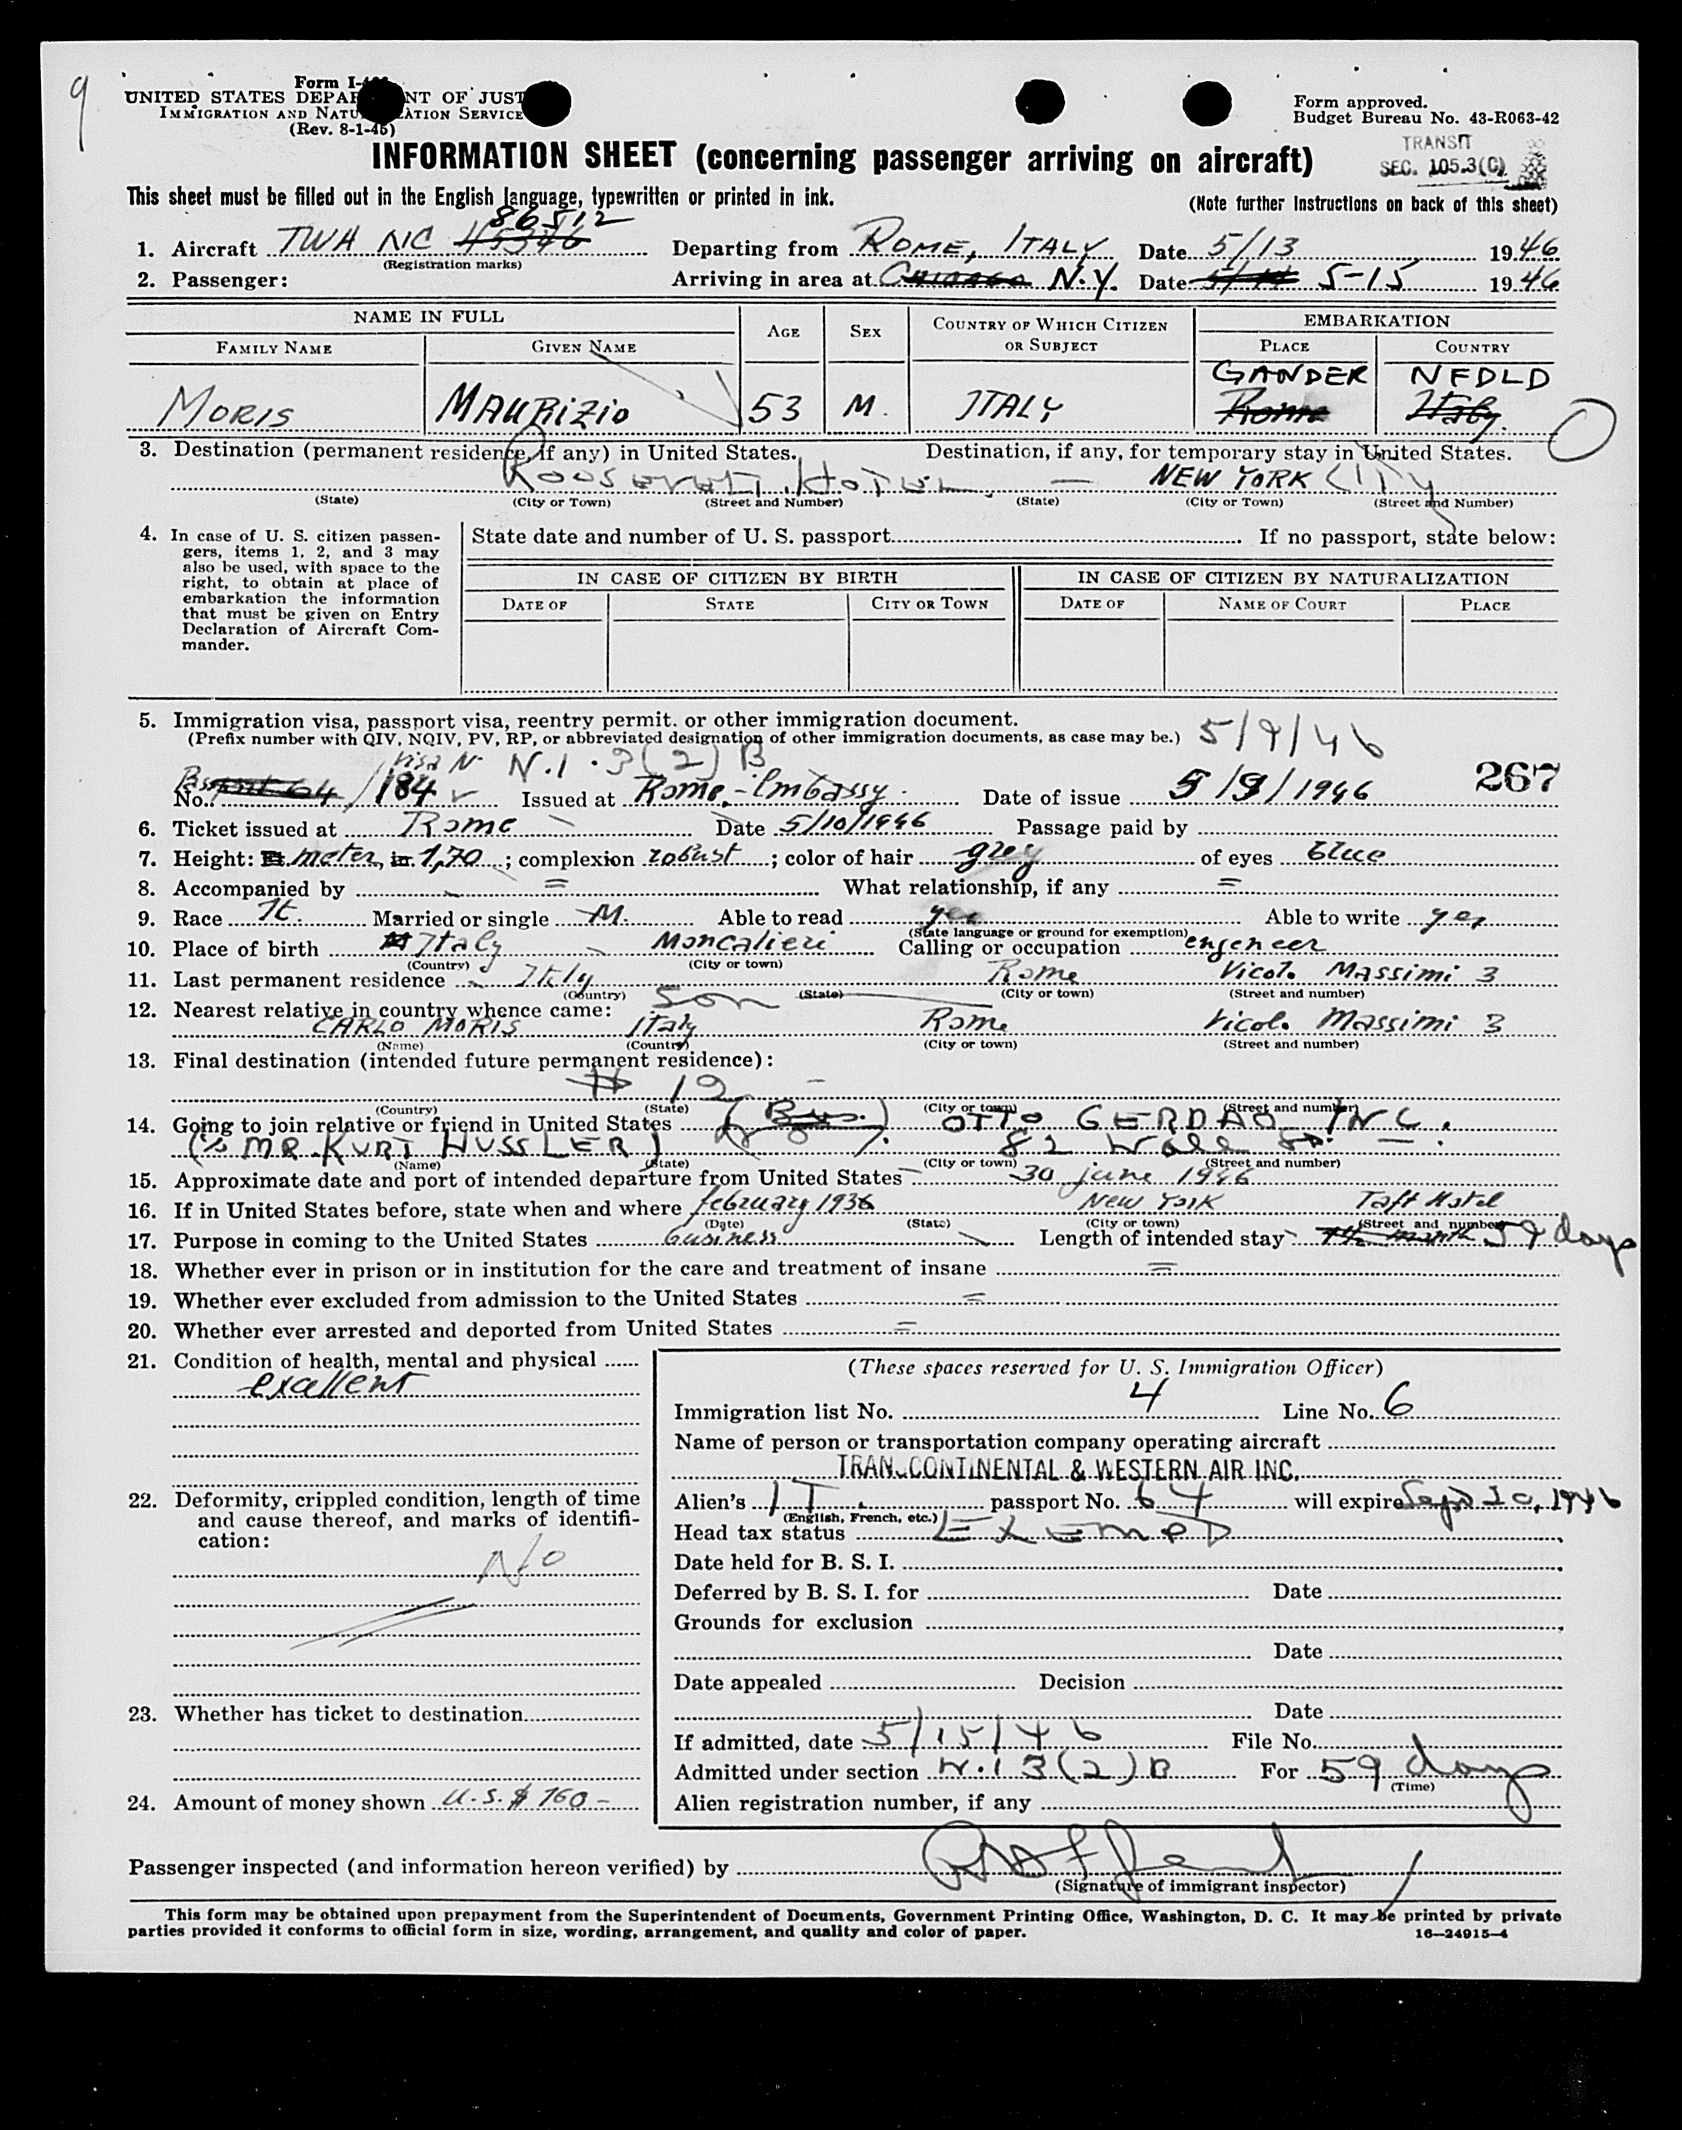 9
Form I-
UNITED STATES DEPA NT OF JUST
IMMIGRATION AND NATU ATION SERVICE
(Rev. 8-1-45)
Form approved.
Budget Bureau No. 43-R063-42
TRANSIT
SEC. 105.3(C)
INFORMATION SHEET (concerning passenger arriving on aircraft)
This sheet must be filled out in the English language, typewritten or printed in ink.
(Note further instructions on back of this sheet)
86512
1. Aircraft TWA NC 45346 Departing from ROME, ITALY Date 5/13 1946
(Registration marks)
2. Passenger: Arriving in area at Chicago N.Y. Date 5/14 5-15 1946
NAME IN FULL AGE SEX COUNTRY OF WHICH CITIZEN OR SUBJECT EMBARKATION
FAMILY NAME GIVEN NAME PLACE COUNTRY
GANDER NFDLD
MORIS MAURIZIO 53 M. ITALY Rome Italy.
3. Destination (permanent residence, if any) in United States. Destination, if any, for temporary stay in United States.
ROOSEVELT HOTEL, — NEW YORK CITY
(State) (City or Town) (Street and Number) (State) (City or Town) (Street and Number)
4. In case of U. S. citizen passengers, items 1, 2, and 3 may also be used, with space to the right, to obtain at place of embarkation the information that must be given on Entry Declaration of Aircraft Commander.
State date and number of U. S. passport If no passport, state below:
IN CASE OF CITIZEN BY BIRTH IN CASE OF CITIZEN BY NATURALIZATION
DATE OF STATE CITY OR TOWN DATE OF NAME OF COURT PLACE
5. Immigration visa, passport visa, reentry permit, or other immigration document.
(Prefix number with QIV, NQIV, PV, RP, or abbreviated designation of other immigration documents, as case may be.) 5/9/46
Visa N. N.I. 3(2)B
267
No. 64 / 184 Issued at Rome, - Embassy. Date of issue 5/9/1946
6. Ticket issued at Rome Date 5/10/1946 Passage paid by
7. Height: Ft. meter, in. 1,70 ; complexion robust ; color of hair grey of eyes blue
8. Accompanied by = What relationship, if any =
9. Race It. Married or single M. Able to read yes Able to write yes
(State language or ground for exemption)
10. Place of birth Italy Moncalieri Calling or occupation engeneer
(Country) (City or town)
11. Last permanent residence Italy Rome Vicol. Massimi 3
(Country) (State) (City or town) (Street and number)
12. Nearest relative in country whence came: Son
CARLO MORIS Italy Rome Vicol. Massimi 3
(Name) (Country) (City or town) (Street and number)
13. Final destination (intended future permanent residence):
# 12 -
(Country) (State) (City or town) (Street and number)
14. Going to join relative or friend in United States (Bus.) OTTO GERDAO INC.
(% MR. KURT HUSSLER) 82 Wall St. —.
(Name) (State) (City or town) (Street and number)
15. Approximate date and port of intended departure from United States 30 june 1946
16. If in United States before, state when and where february 1936 New York Taft Hotel
(Date) (State) (City or town) (Street and number)
17. Purpose in coming to the United States business Length of intended stay 59 days
18. Whether ever in prison or in institution for the care and treatment of insane =
19. Whether ever excluded from admission to the United States =
20. Whether ever arrested and deported from United States =
21. Condition of health, mental and physical
exellent
22. Deformity, crippled condition, length of time and cause thereof, and marks of identification:
No
23. Whether has ticket to destination
24. Amount of money shown U.S. $ 760 -
(These spaces reserved for U. S. Immigration Officer)
Immigration list No. 4 Line No. 6
Name of person or transportation company operating aircraft
TRANSCONTINENTAL & WESTERN AIR INC.
Alien's IT. passport No. 64 will expire Sept 20, 1946
(English, French, etc.)
Head tax status EXEMPT
Date held for B. S. I.
Deferred by B. S. I. for Date
Grounds for exclusion
Date
Date appealed Decision
Date
If admitted, date 5/15/46 File No.
Admitted under section N.I 3(2)B For 59 days
(Time)
Alien registration number, if any
Passenger inspected (and information hereon verified) by
(Signature of immigrant inspector)
This form may be obtained upon prepayment from the Superintendent of Documents, Government Printing Office, Washington, D. C. It may be printed by private
parties provided it conforms to official form in size, wording, arrangement, and quality and color of paper. 16—24915-4